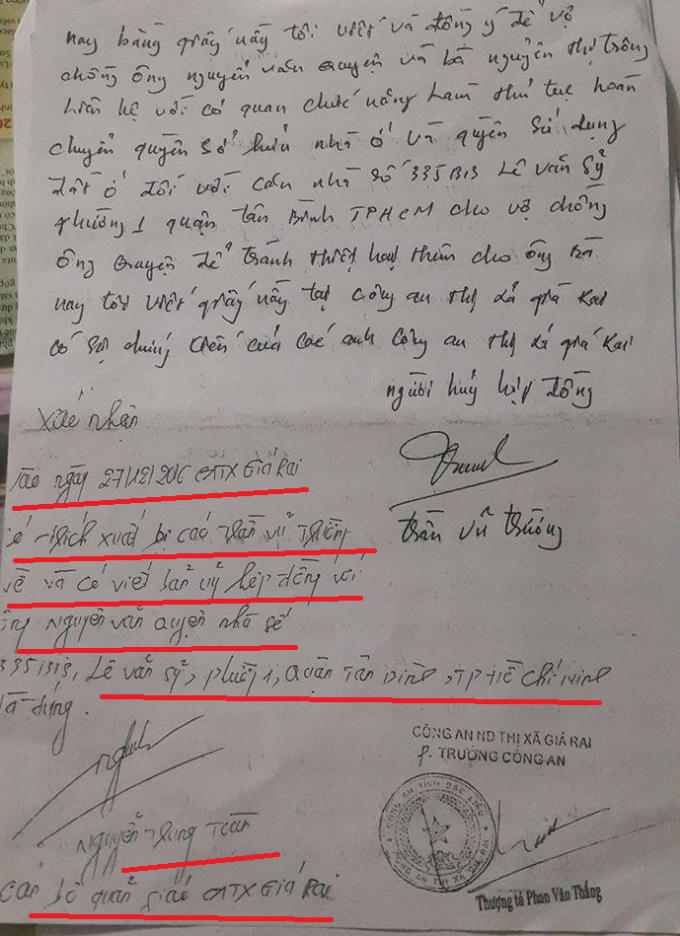 nay bằng giấy nầy tôi viết và đồng ý để vợ
chồng ông nguyễn văn Quyện và bà nguyễn thị trông
liên hệ với cơ quan chức năng làm thủ tục hoán
chuyển quyền sở hữu nhà ở và quyền sử dụng
đất ở đối với căn nhà số 335 Lê văn sỹ
phường 1 quận tân Bình TPHCM cho vợ chồng
ông Quyện để tránh thiệt hại thêm cho ông Bà
nay tôi viết giấy nầy tại công an thị xã giá Rai
có sự chứng kiến của các anh công an thị xã giá Rai
người huỷ hợp đồng
Xác nhận
Vào ngày 27/12/2016 CATX Giá Rai
có trích xuất bị cáo Trần vũ Trường
về và có viết bản uỷ hợp đồng với
ông Nguyễn văn Quyện nhà số
Lê văn sỹ, phường 1, Quận Tân Bình, TP Hồ Chí Minh
là đúng.
trần vũ trường
CÔNG AN ND THỊ XÃ GIÁ RAI
P. TRƯỞNG CÔNG AN
Nguyễn Trung Toàn
Cán bộ quản giáo CATX Giá Rai
Thượng tá Phan Văn Thắng